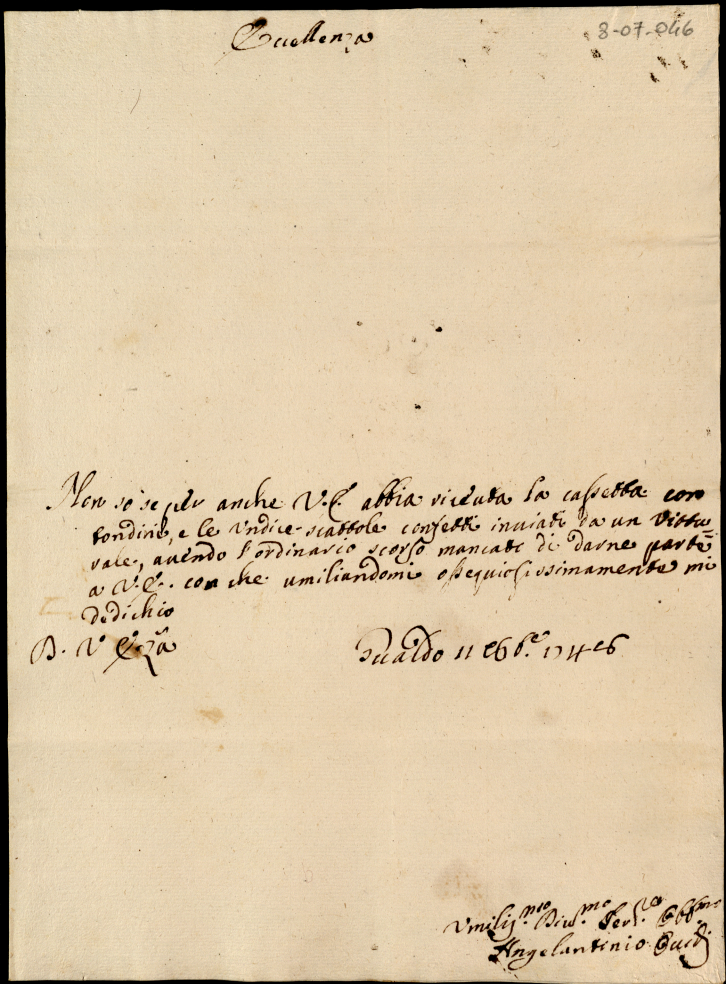 8-07-046
Eccellenza
Non so se per anche V. E. abbia riceuta la cassetta con
tondini, e le Vndice scattole confetti inuiati da un Vittu=
rale, auendo l'ordinario scorso mancato di darne parte
a V. E. con che umiliandomi ossequiosissimamente mi
dedichio
D. V Ecc.za
Gualdo 11 Xbre. 1746
Vmiliss.mo Diu.mo Ser.re Obb.mo
Angelantonio